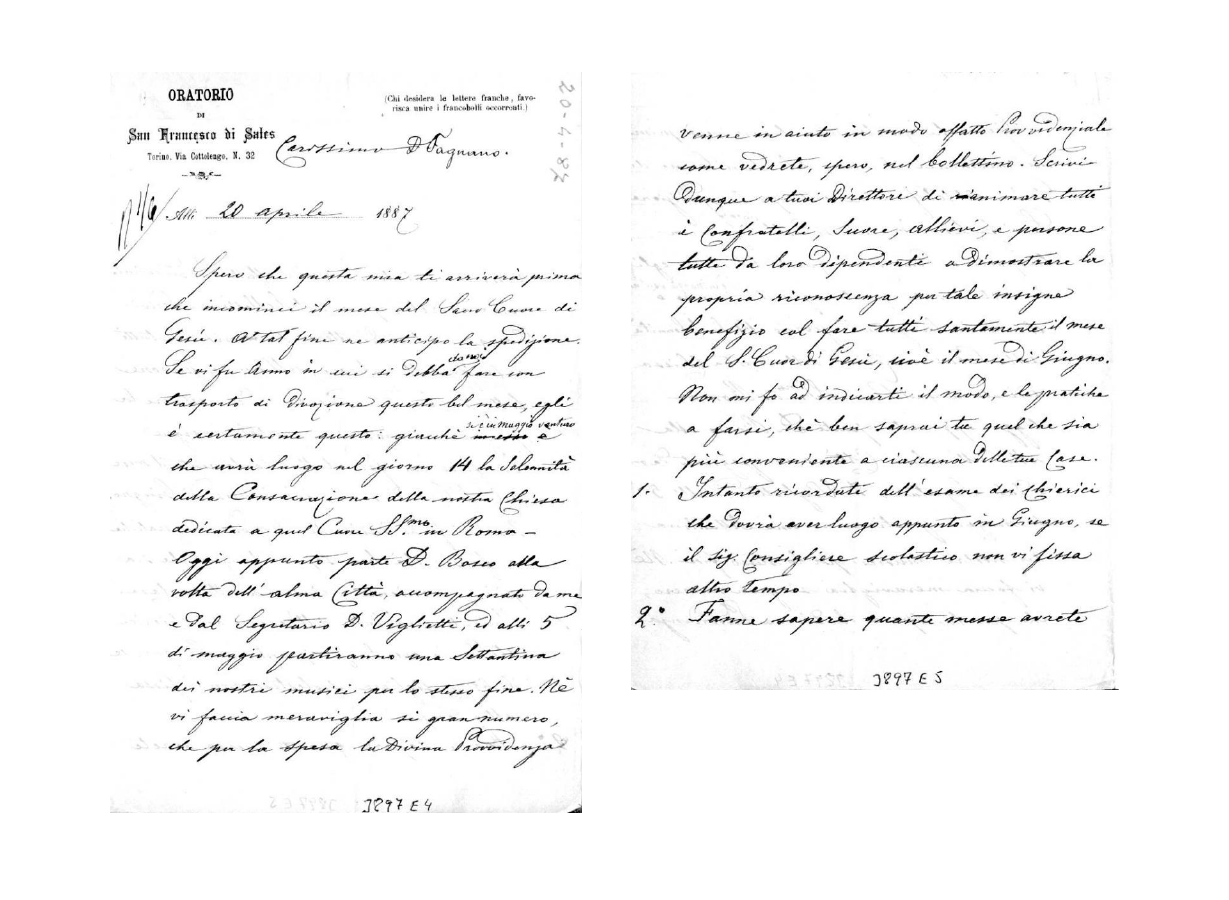 ORATORIO
DI
San Francesco di Sales
Torino, Via Cottolengo, N. 32
(Chi desidera le lettere franche, favo-
risca unire i francobolli occorrenti.)
20-4-87
Carissimo D Fagnano.
Alli 20 aprile 1887
Spero che questa mia ti arriverà prima
che incominci il mese del Sacro Cuore di
Gesù. A tal fine ne anticipo la spedizione.
Se vi fu Anno in cui si debba da noi fare con
trasporto di divozione questo bel mese, egli
è certamente questo: giacchè si è in maggio venturo
che avrà luogo nel giorno 14 la Solennità
della Consacrazione della nostra Chiesa
dedicata a quel Cuore SS.mo in Roma –
Oggi appunto parte D. Bosco alla
volta dell'alma Città, accompagnato da me
e dal Segretario D. Viglietti, ed alli 5
di maggio partiranno una Settantina
dei nostri musici per lo stesso fine. Nè
vi faccia meraviglia si gran numero,
che per la spesa la Divina Provvidenza
J897 E 4
venne in aiuto in modo affatto Provvidenziale
come vedrete, spero, nel bollettino. Scrivi
dunque a tuoi Direttori di rianimare tutti
i Confratelli, Suore, Allievi, e persone
tutte da loro dipendenti a dimostrare la
propria riconoscenza per tale insigne
benefizio col fare tutti santamente il mese
del S. Cuor di Gesù, cioè il mese di Giugno.
Non mi fo ad indicarti il modo, e le pratiche
a farsi, chè ben saprai tu quel che sia
più conveniente a ciascuna delle tue Case.
1. Intanto ricordate dell'esame dei Chierici
che dovrà aver luogo appunto in Giugno, se
il Sig. Consigliere scolastico non vi fissa
altro tempo
2.° Fanne sapere quante messe avrete
J897 E 5